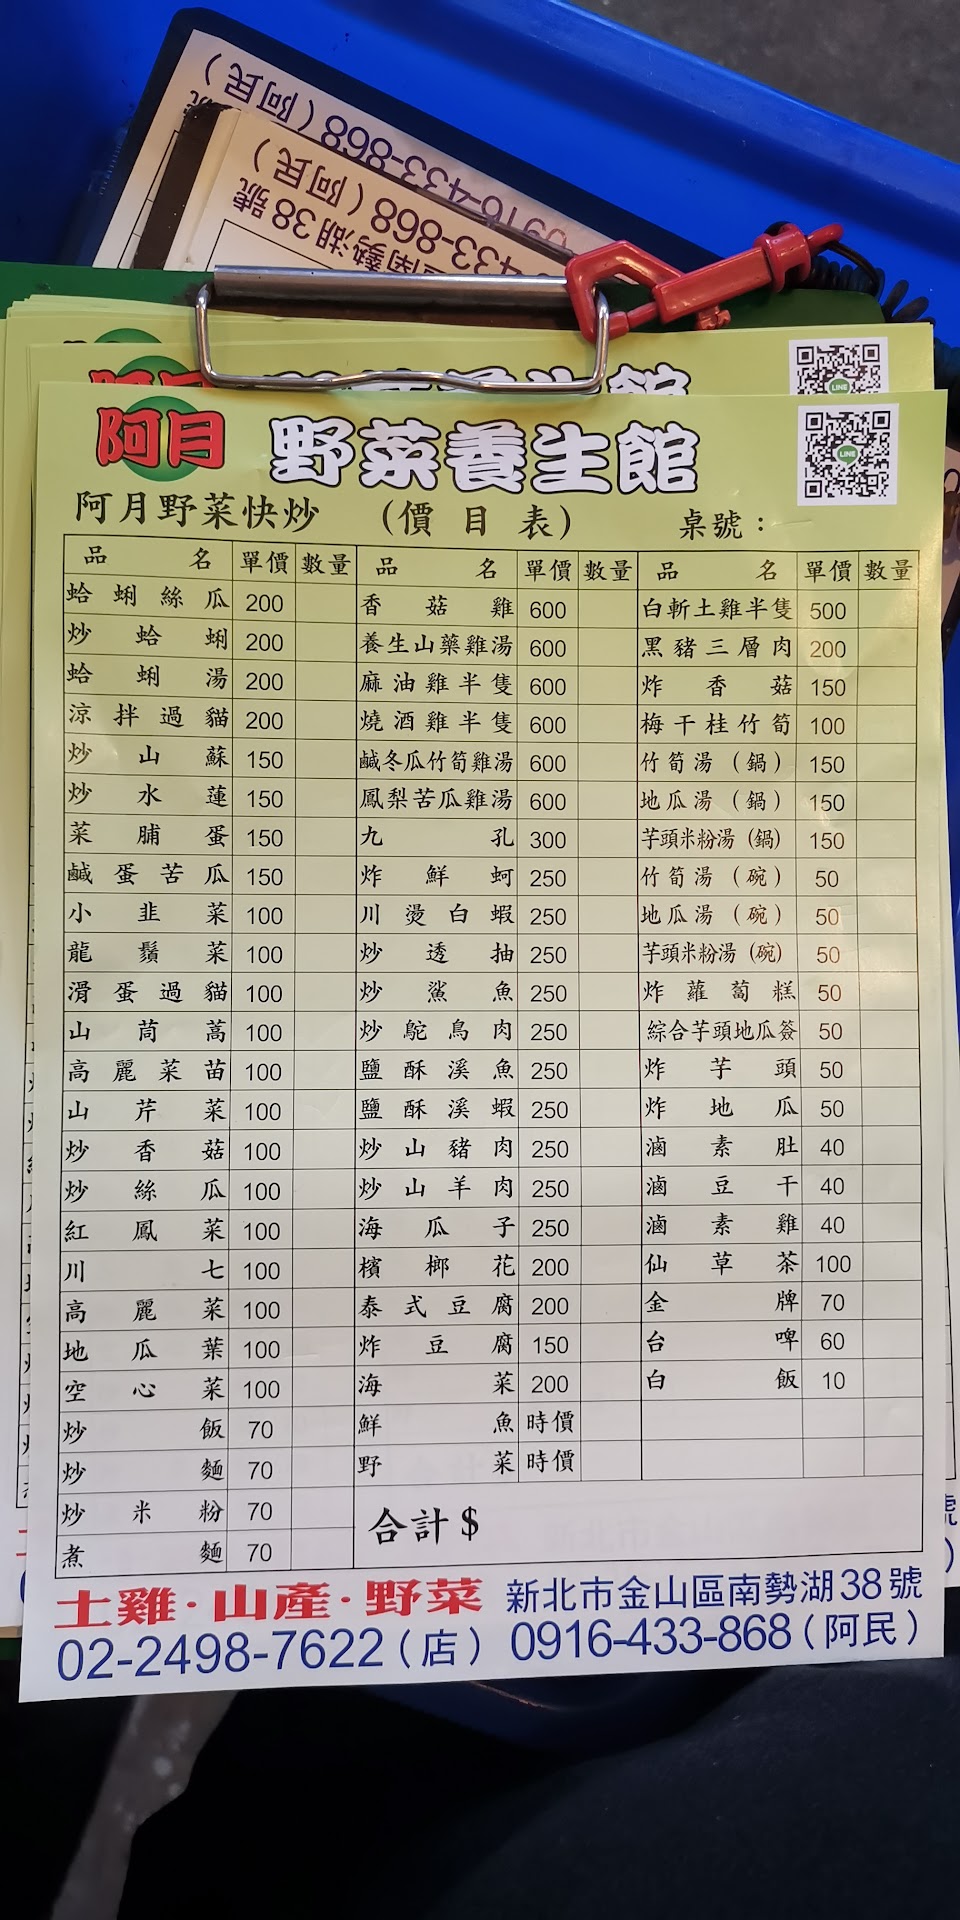 0916-433-868（阿民）
號
433-868（阿民）
南勢湖38號
養生館
LINE
阿月 野菜養生館
LINE
阿月野菜快炒 （價目表） 桌號：
品名 單價 數量 品名 單價 數量 品名 單價 數量
蛤蜊絲瓜 200 香菇雞 600 白斬土雞半隻 500
炒蛤蜊 200 養生山藥雞湯 600 黑豬三層肉 200
蛤蜊湯 200 麻油雞半隻 600 炸香菇 150
涼拌過貓 200 燒酒雞半隻 600 梅干桂竹筍 100
炒山蘇 150 鹹冬瓜竹筍雞湯 600 竹筍湯（鍋） 150
炒水蓮 150 鳳梨苦瓜雞湯 600 地瓜湯（鍋） 150
菜脯蛋 150 九孔 300 芋頭米粉湯（鍋） 150
鹹蛋苦瓜 150 炸鮮蚵 250 竹筍湯（碗） 50
小韭菜 100 川燙白蝦 250 地瓜湯（碗） 50
龍鬚菜 100 炒透抽 250 芋頭米粉湯（碗） 50
滑蛋過貓 100 炒鯊魚 250 炸蘿蔔糕 50
山茼蒿 100 炒鴕鳥肉 250 綜合芋頭地瓜簽 50
高麗菜苗 100 鹽酥溪魚 250 炸芋頭 50
山芹菜 100 鹽酥溪蝦 250 炸地瓜 50
炒香菇 100 炒山豬肉 250 滷素肚 40
炒絲瓜 100 炒山羊肉 250 滷豆干 40
紅鳳菜 100 海瓜子 250 滷素雞 40
川七 100 檳榔花 200 仙草茶 100
高麗菜 100 泰式豆腐 200 金牌 70
地瓜葉 100 炸豆腐 150 台啤 60
空心菜 100 海菜 200 白飯 10
炒飯 70 鮮魚 時價
炒麵 70 野菜 時價
炒米粉 70 合計$
煮麵 70
土雞·山產·野菜 新北市金山區南勢湖38號
02-2498-7622（店） 0916-433-868（阿民）